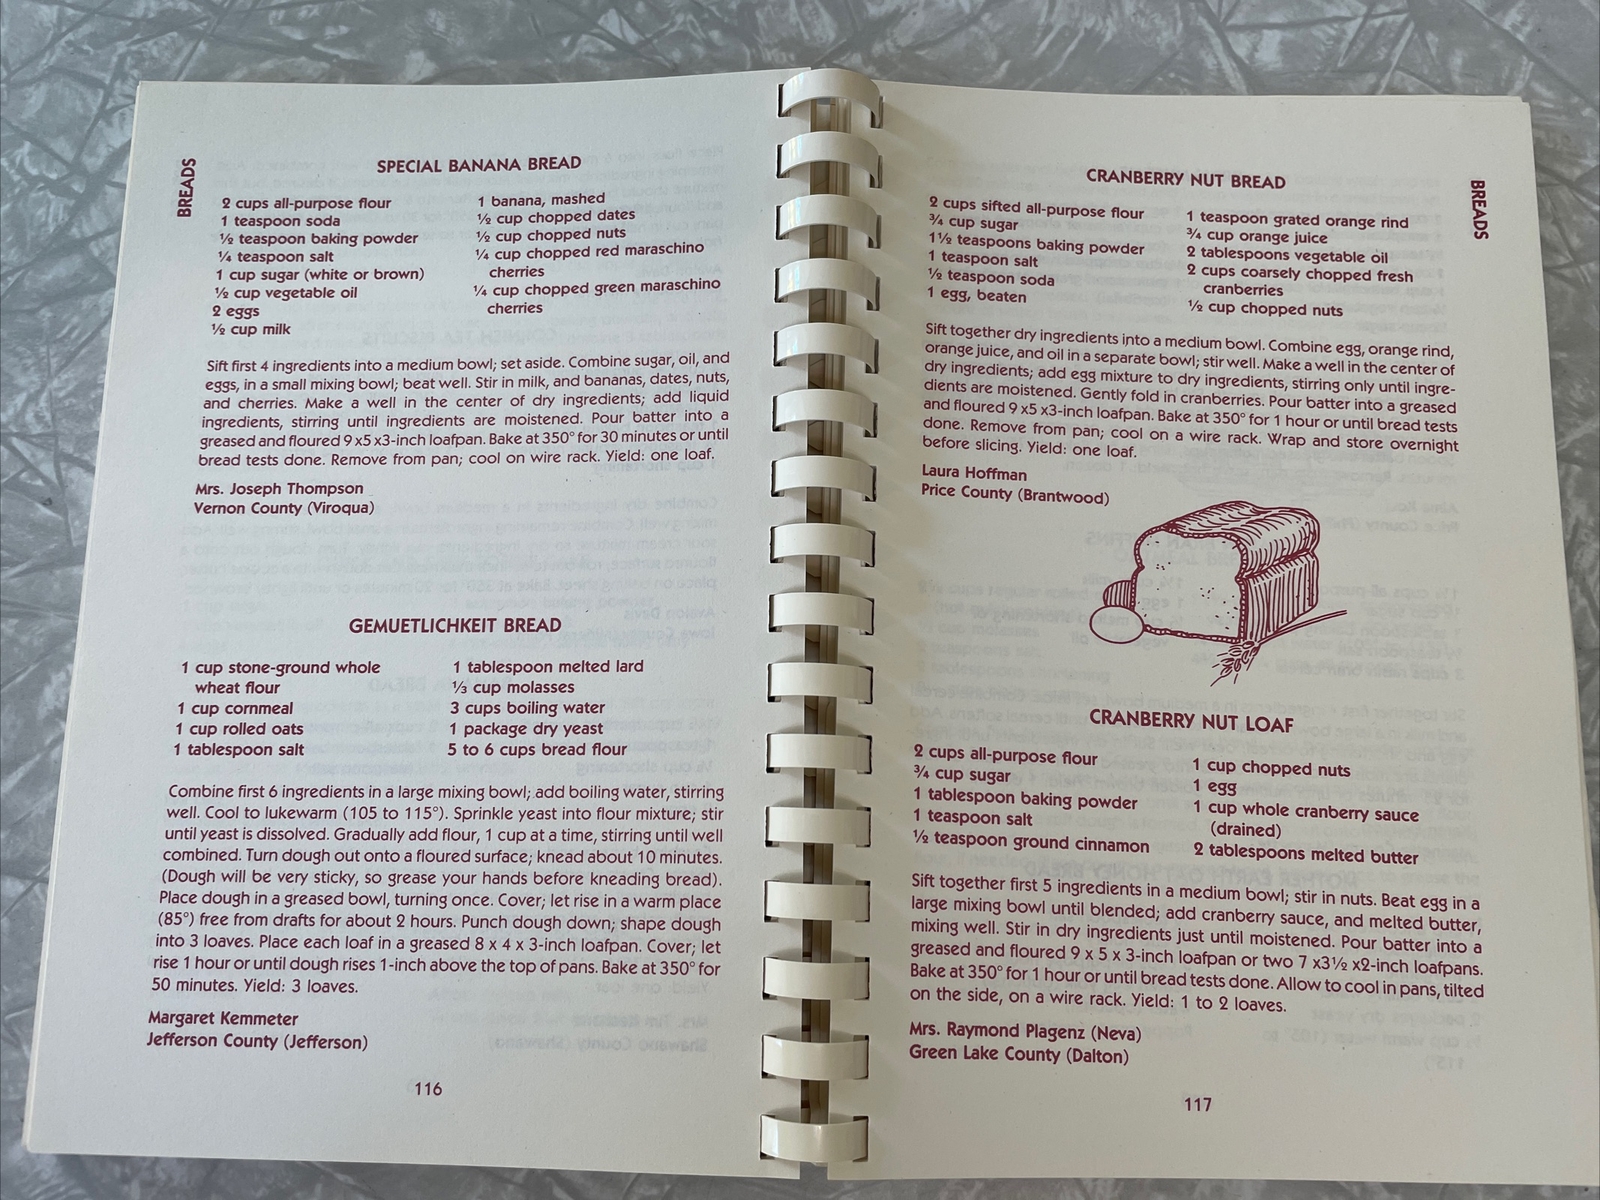 BREADS
SPECIAL BANANA BREAD
2 cups all-purpose flour
1 teaspoon soda
½ teaspoon baking powder
¼ teaspoon salt
1 cup sugar (white or brown)
½ cup vegetable oil
2 eggs
½ cup milk
1 banana, mashed
½ cup chopped dates
½ cup chopped nuts
¼ cup chopped red maraschino
cherries
¼ cup chopped green maraschino
cherries
Sift first 4 ingredients into a medium bowl; set aside. Combine sugar, oil, and
eggs, in a small mixing bowl; beat well. Stir in milk, and bananas, dates, nuts,
and cherries. Make a well in the center of dry ingredients; add liquid
ingredients, stirring until ingredients are moistened. Pour batter into a
greased and floured 9 x5 x3-inch loafpan. Bake at 350° for 30 minutes or until
bread tests done. Remove from pan; cool on wire rack. Yield: one loaf.
Mrs. Joseph Thompson
Vernon County (Viroqua)
GEMUETLICHKEIT BREAD
1 cup stone-ground whole
wheat flour
1 cup cornmeal
1 cup rolled oats
1 tablespoon salt
1 tablespoon melted lard
⅓ cup molasses
3 cups boiling water
1 package dry yeast
5 to 6 cups bread flour
Combine first 6 ingredients in a large mixing bowl; add boiling water, stirring
well. Cool to lukewarm (105 to 115°). Sprinkle yeast into flour mixture; stir
until yeast is dissolved. Gradually add flour, 1 cup at a time, stirring until well
combined. Turn dough out onto a floured surface; knead about 10 minutes.
(Dough will be very sticky, so grease your hands before kneading bread).
Place dough in a greased bowl, turning once. Cover; let rise in a warm place
(85°) free from drafts for about 2 hours. Punch dough down; shape dough
into 3 loaves. Place each loaf in a greased 8 x 4 x 3-inch loafpan. Cover; let
rise 1 hour or until dough rises 1-inch above the top of pans. Bake at 350° for
50 minutes. Yield: 3 loaves.
Margaret Kemmeter
Jefferson County (Jefferson)
116
BREADS
CRANBERRY NUT BREAD
2 cups sifted all-purpose flour
¾ cup sugar
1½ teaspoons baking powder
1 teaspoon salt
½ teaspoon soda
1 egg, beaten
1 teaspoon grated orange rind
¾ cup orange juice
2 tablespoons vegetable oil
2 cups coarsely chopped fresh
cranberries
½ cup chopped nuts
Sift together dry ingredients into a medium bowl. Combine egg, orange rind,
orange juice, and oil in a separate bowl; stir well. Make a well in the center of
dry ingredients; add egg mixture to dry ingredients, stirring only until ingre-
dients are moistened. Gently fold in cranberries. Pour batter into a greased
and floured 9 x5 x3-inch loafpan. Bake at 350° for 1 hour or until bread tests
done. Remove from pan; cool on a wire rack. Wrap and store overnight
before slicing. Yield: one loaf.
Laura Hoffman
Price County (Brantwood)
CRANBERRY NUT LOAF
2 cups all-purpose flour
¾ cup sugar
1 tablespoon baking powder
1 teaspoon salt
½ teaspoon ground cinnamon
1 cup chopped nuts
1 egg
1 cup whole cranberry sauce
(drained)
2 tablespoons melted butter
Sift together first 5 ingredients in a medium bowl; stir in nuts. Beat egg in a
large mixing bowl until blended; add cranberry sauce, and melted butter,
mixing well. Stir in dry ingredients just until moistened. Pour batter into a
greased and floured 9 x 5 x 3-inch loafpan or two 7 x3½ x2-inch loafpans.
Bake at 350° for 1 hour or until bread tests done. Allow to cool in pans, tilted
on the side, on a wire rack. Yield: 1 to 2 loaves.
Mrs. Raymond Plagenz (Neva)
Green Lake County (Dalton)
117